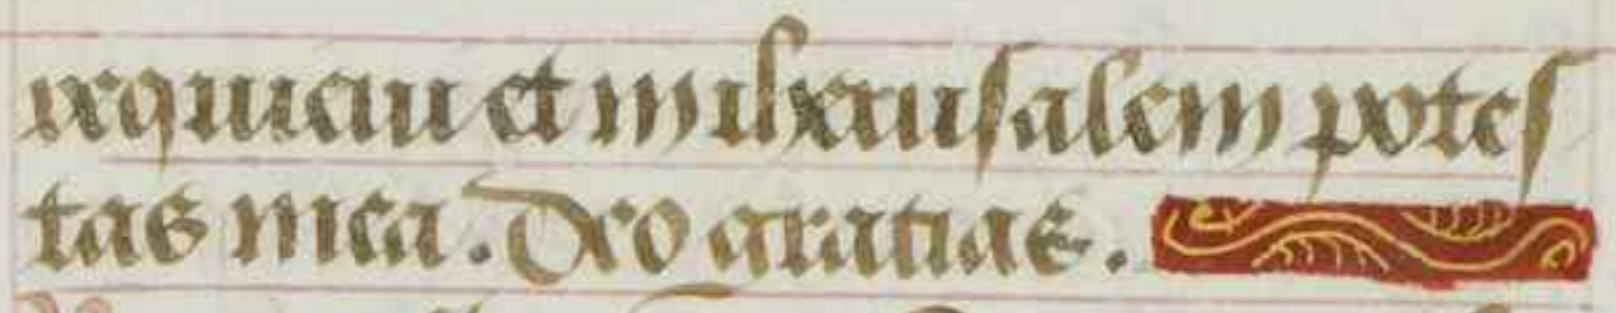 requieui et in iherusalem potes
tas mea. Deo gratias.